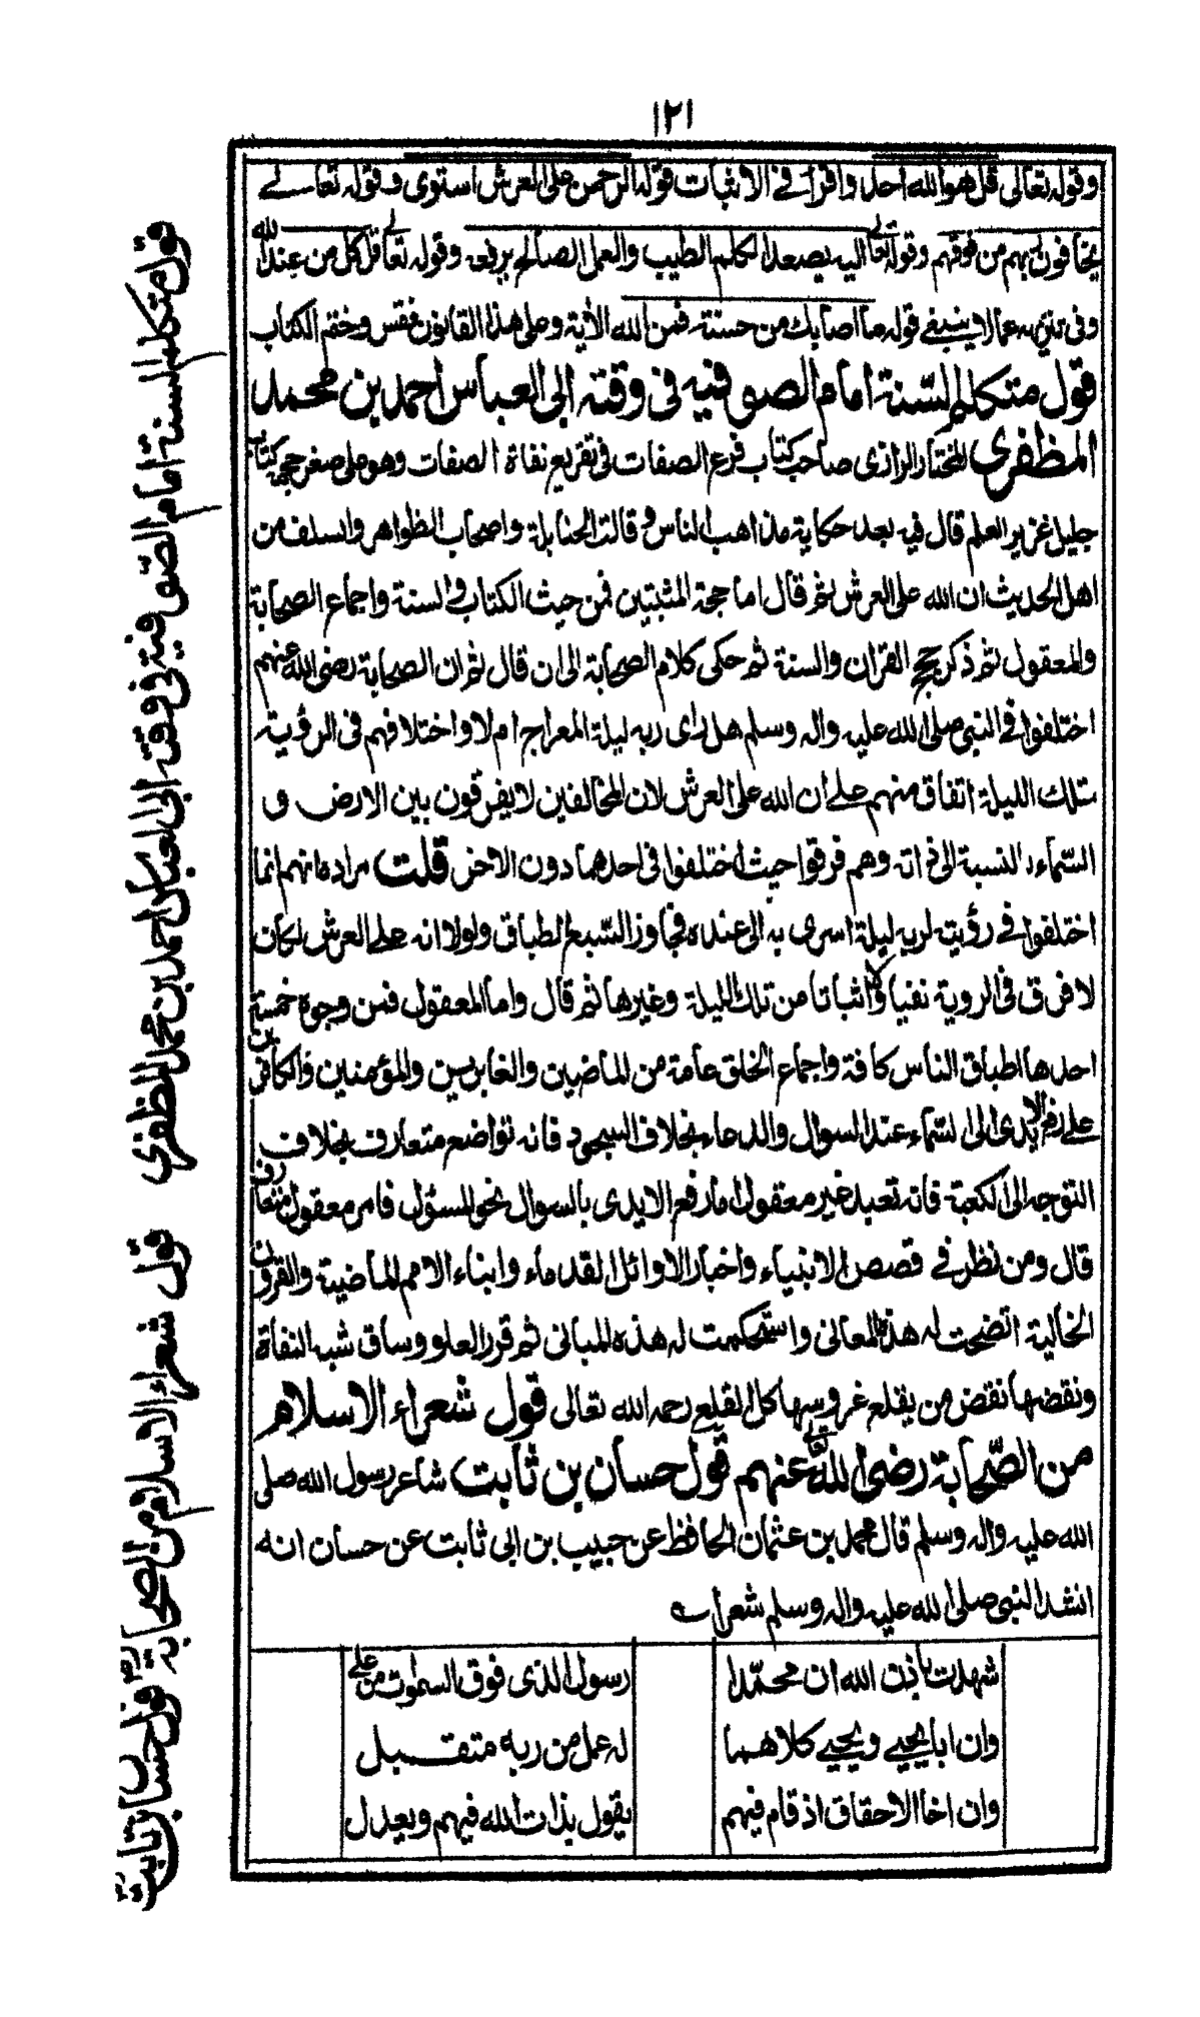 ١٢١
وقوله تعالى قل هو الله احد واقرأ في الاثبات قوله الرحمن على العرش استوى وقوله تعالى
يخافون ربهم من فوقهم وقوله تعالى اليه يصعد الكلم الطيب والعمل الصالح يرفعه وقوله تعالى قل كل من عند الله
وفى تنزيهه عما لا ينبغي قوله ما اصابك من حسنة فمن الله الأية وعلى هذا القانون فقس وختم الكتاب
قول متكلم السّنة امام الصوفية في وقته ابى العباس احمد بن محمد
المظفري المختار الرازى صاحب كتاب فرع الصفات فى تقريع نفاة الصفات وهو على صغر حجمه كتاب
جليل غزير العلم قال فيه بعد حكاية مذاهب الناس وقالت الحنابلة واصحاب الظواهر والسلف من
اهل الحديث ان الله على العرش ثم قال اما حجة المثبتين فمن حيث الكتاب والسنة واجماع الصحابة
والمعقول ثم ذكر حجج القران والسنة ثم حكى كلام الصحابة الى ان قال ثم ان الصحابة رضى الله عنهم
اختلفوا في النبى صلى الله عليه واله وسلم هل راى ربه ليلة المعراج ام لا واختلافهم فى الرؤية
تلك الليلة اتفاق منهم على ان الله على العرش لان المخالفين لا يفرقون بين الارض و
السّماء بالنسبة الى ذاته وهم فرقوا حيث اختلفوا فى احدهما دون الاخر قلت مراده انهم انما
اختلفوا في رؤيته لربه ليلة اسرى به الى عنده فجاوز السّبع الطباق ولولا انه على العرش لكان
لا فرق فى الروية نفيا ولا اثباتا من تلك الليلة وغيرها ثم قال واما المعقول فمن وجوه خمسة
احدها اطباق الناس كافة واجماع الخلق عامة من الماضيين والغابرين والمؤمنين والكافرين
على رفع الايدى الى السّماء عند السوال والدعاء بخلاف السجود فانه تواضع متعارف بخلاف
التوجه الى الكعبة فانه تعبد غير معقول اما رفع الايدى بالسوال نحو المسؤل فامر معقول متعارف
قال ومن نظر في قصص الانبياء واخبار الاوائل القدماء وابناء الامم الماضية والقرون
الخالية اتضحت له هذه المعانى واستحكمت له هذه المبانى ثم قرر العلو وساق شبه النفاة
ونقضها نقض من يقلع غروسها كل القلع رحمه الله تعالى قول شعراء الاسلام
من الصّحابة رضى الله تعالى عنهم قول حسان بن ثابت شاعر رسول الله صلى
الله عليه واله وسلم قال محمد بن عثمان الحافظ عن حبيب بن ابى ثابت عن حسان انه
انشد النبى صلى الله عليه واله وسلم شعرا
شهدت باذن الله ان محمّدا رسول الذى فوق السموت من على
وان ابا يحيي ويحيي كلاهما له عمل من ربه متقبل
وان اخا الاحقاق اذ قام فيهم يقول بذات الله فيهم ويعدل
قول متكلم السنة امام الصّوفية في وقته ابى العباس احمد بن محمد المظفرى
قول شعراء الاسلام من الصحابة رض قول حسان بن ثابت رض